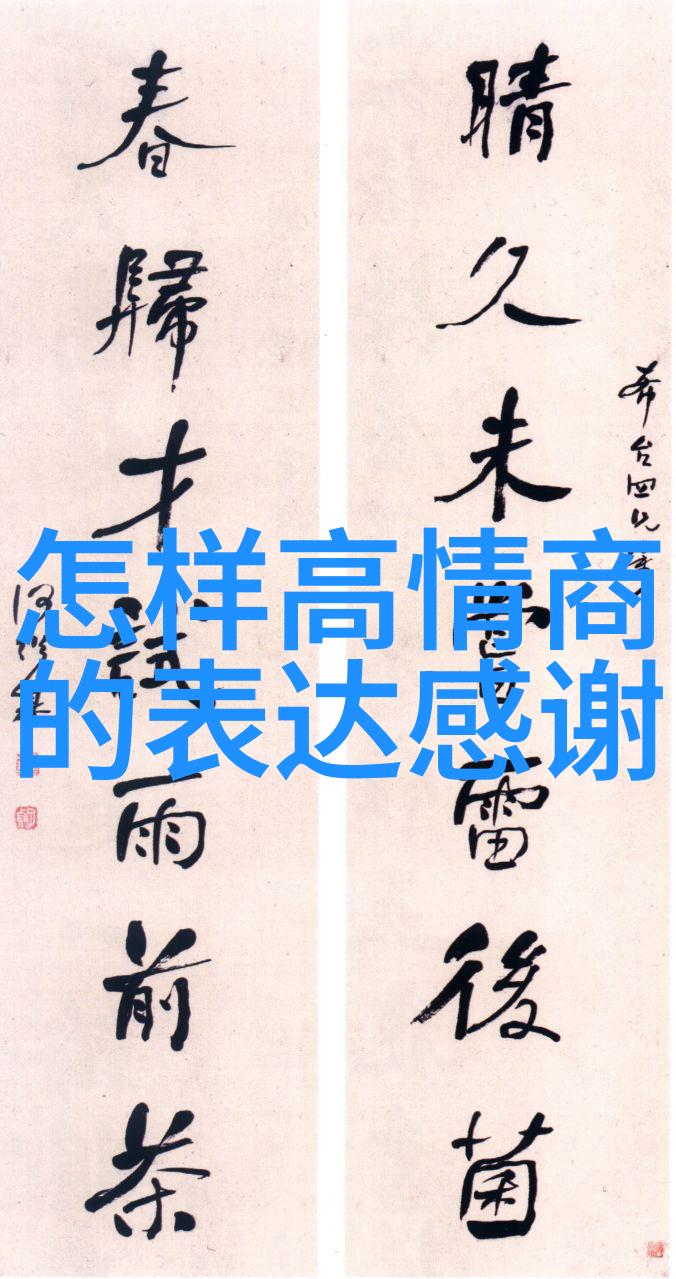 晴久未嘗雷後菌
春歸才試雨前茶
怎样高情商
的表达感谢